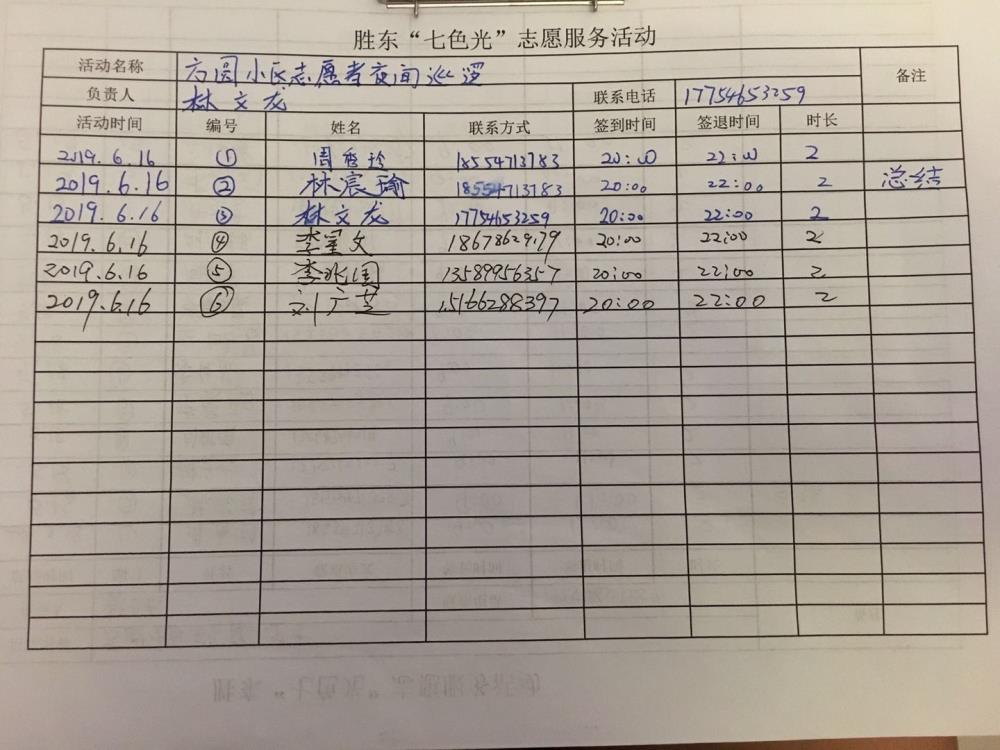 胜东“七色光”志愿服务活动
活动名称 方圆小区志愿者夜间巡逻 备注
负责人 林文龙 联系电话 17754653259
活动时间 编号 姓名 联系方式 签到时间 签退时间 时长
2019.6.16 ① 周秀玲 18554713783 20:00 22:00 2
2019.6.16 ② 林宸瑜 18554713783 20:00 22:00 2 总结
2019.6.16 ③ 林文龙 17754653259 20:00 22:00 2
2019.6.16 ④ 李军文 18678629179 20:00 22:00 2
2019.6.16 ⑤ 李兆国 13589956357 20:00 22:00 2
2019.6.16 ⑥ 刘广芝 15166288397 20:00 22:00 2